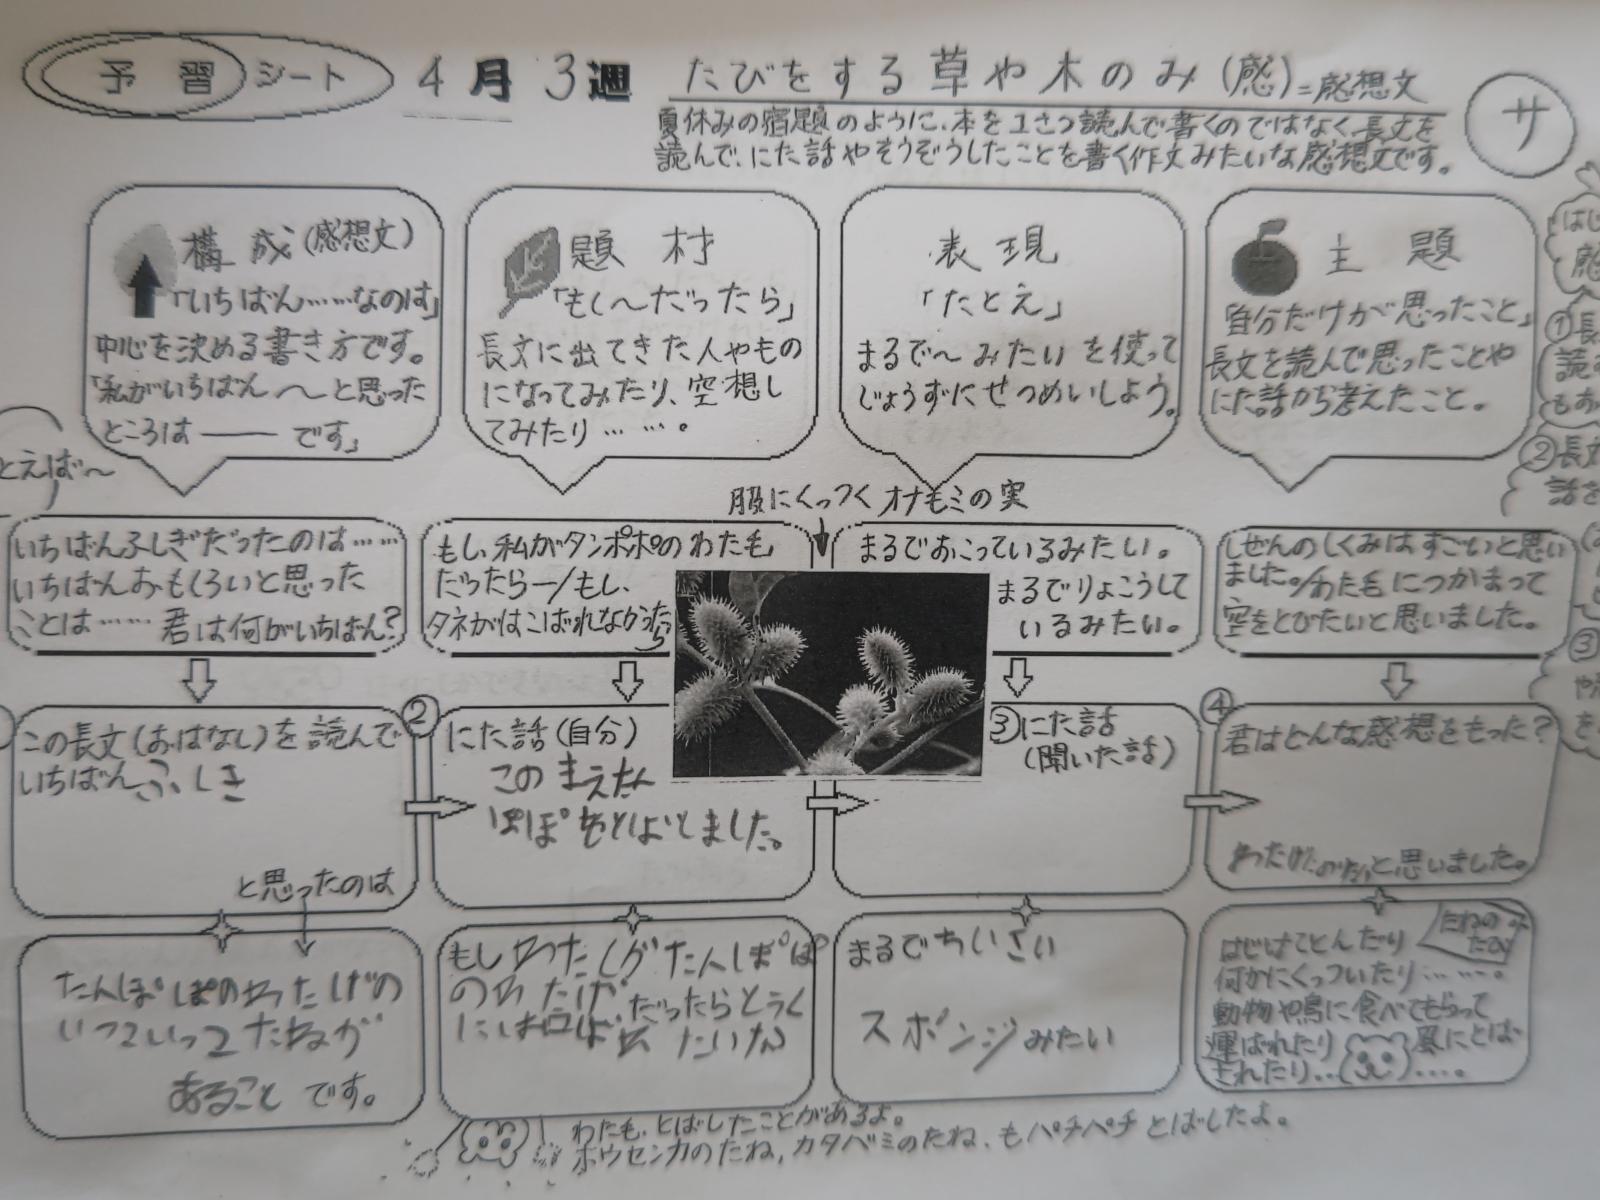 予習シート 4月3週 たびをする草や木のみ(感)=感想文
サ
夏休みの宿題のように、本を1さつ読んで書くのではなく長文を
読んで、にた話やそうぞうしたことを書く作文みたいな感想文です。
構成(感想文)
「いちばん……なのは」
中心を決める書き方です。
「私がいちばん〜と思った
ところは―― です」
題材
「もし〜だったら」
長文に出てきた人やもの
になってみたり、空想し
てみたり……。
表現
「たとえ」
まるで〜みたいを使って
じょうずにせつめいしよう。
主題
「自分だけが思ったこと」
長文を読んで思ったことや
にた話から考えたこと。
とえば〜
はじ
感
①長
読み
もお
②長文
話を
③
服にくっつくオナモミの実
いちばんふしぎだったのは……
いちばんおもしろいと思った
ことは…… 君は何がいちばん?
もし私がタンポポのわた毛
だったら―/もし、
タネがはこばれなかったら
まるでおこっているみたい。
まるでりょこうして
いるみたい。
しぜんのしくみはすごいと思い
ました。/わた毛につかまって
空をとびたいと思いました。
この長文(おはなし)を読んで
いちばんふしぎ
と思ったのは
②にた話(自分)
このまえたん
ぽぽをとばしました。
③にた話
(聞いた話)
④
君はどんな感想をもった?
と思いました。
たんぽぽのわたげの
いつついつつたねが
あることです。
もしわたしがたんぽぽ
のわたげだったらとうく
まるでちいさい
スポンジみたい
たねの
たび
はじけてとんだり
何かにくっついたり……。
動物や鳥に食べてもらって
運ばれたり 風にとば
されたり……。
わた毛、とばしたことがあるよ。
ホウセンカのたね,カタバミのたね、もパチパチとばしたよ。